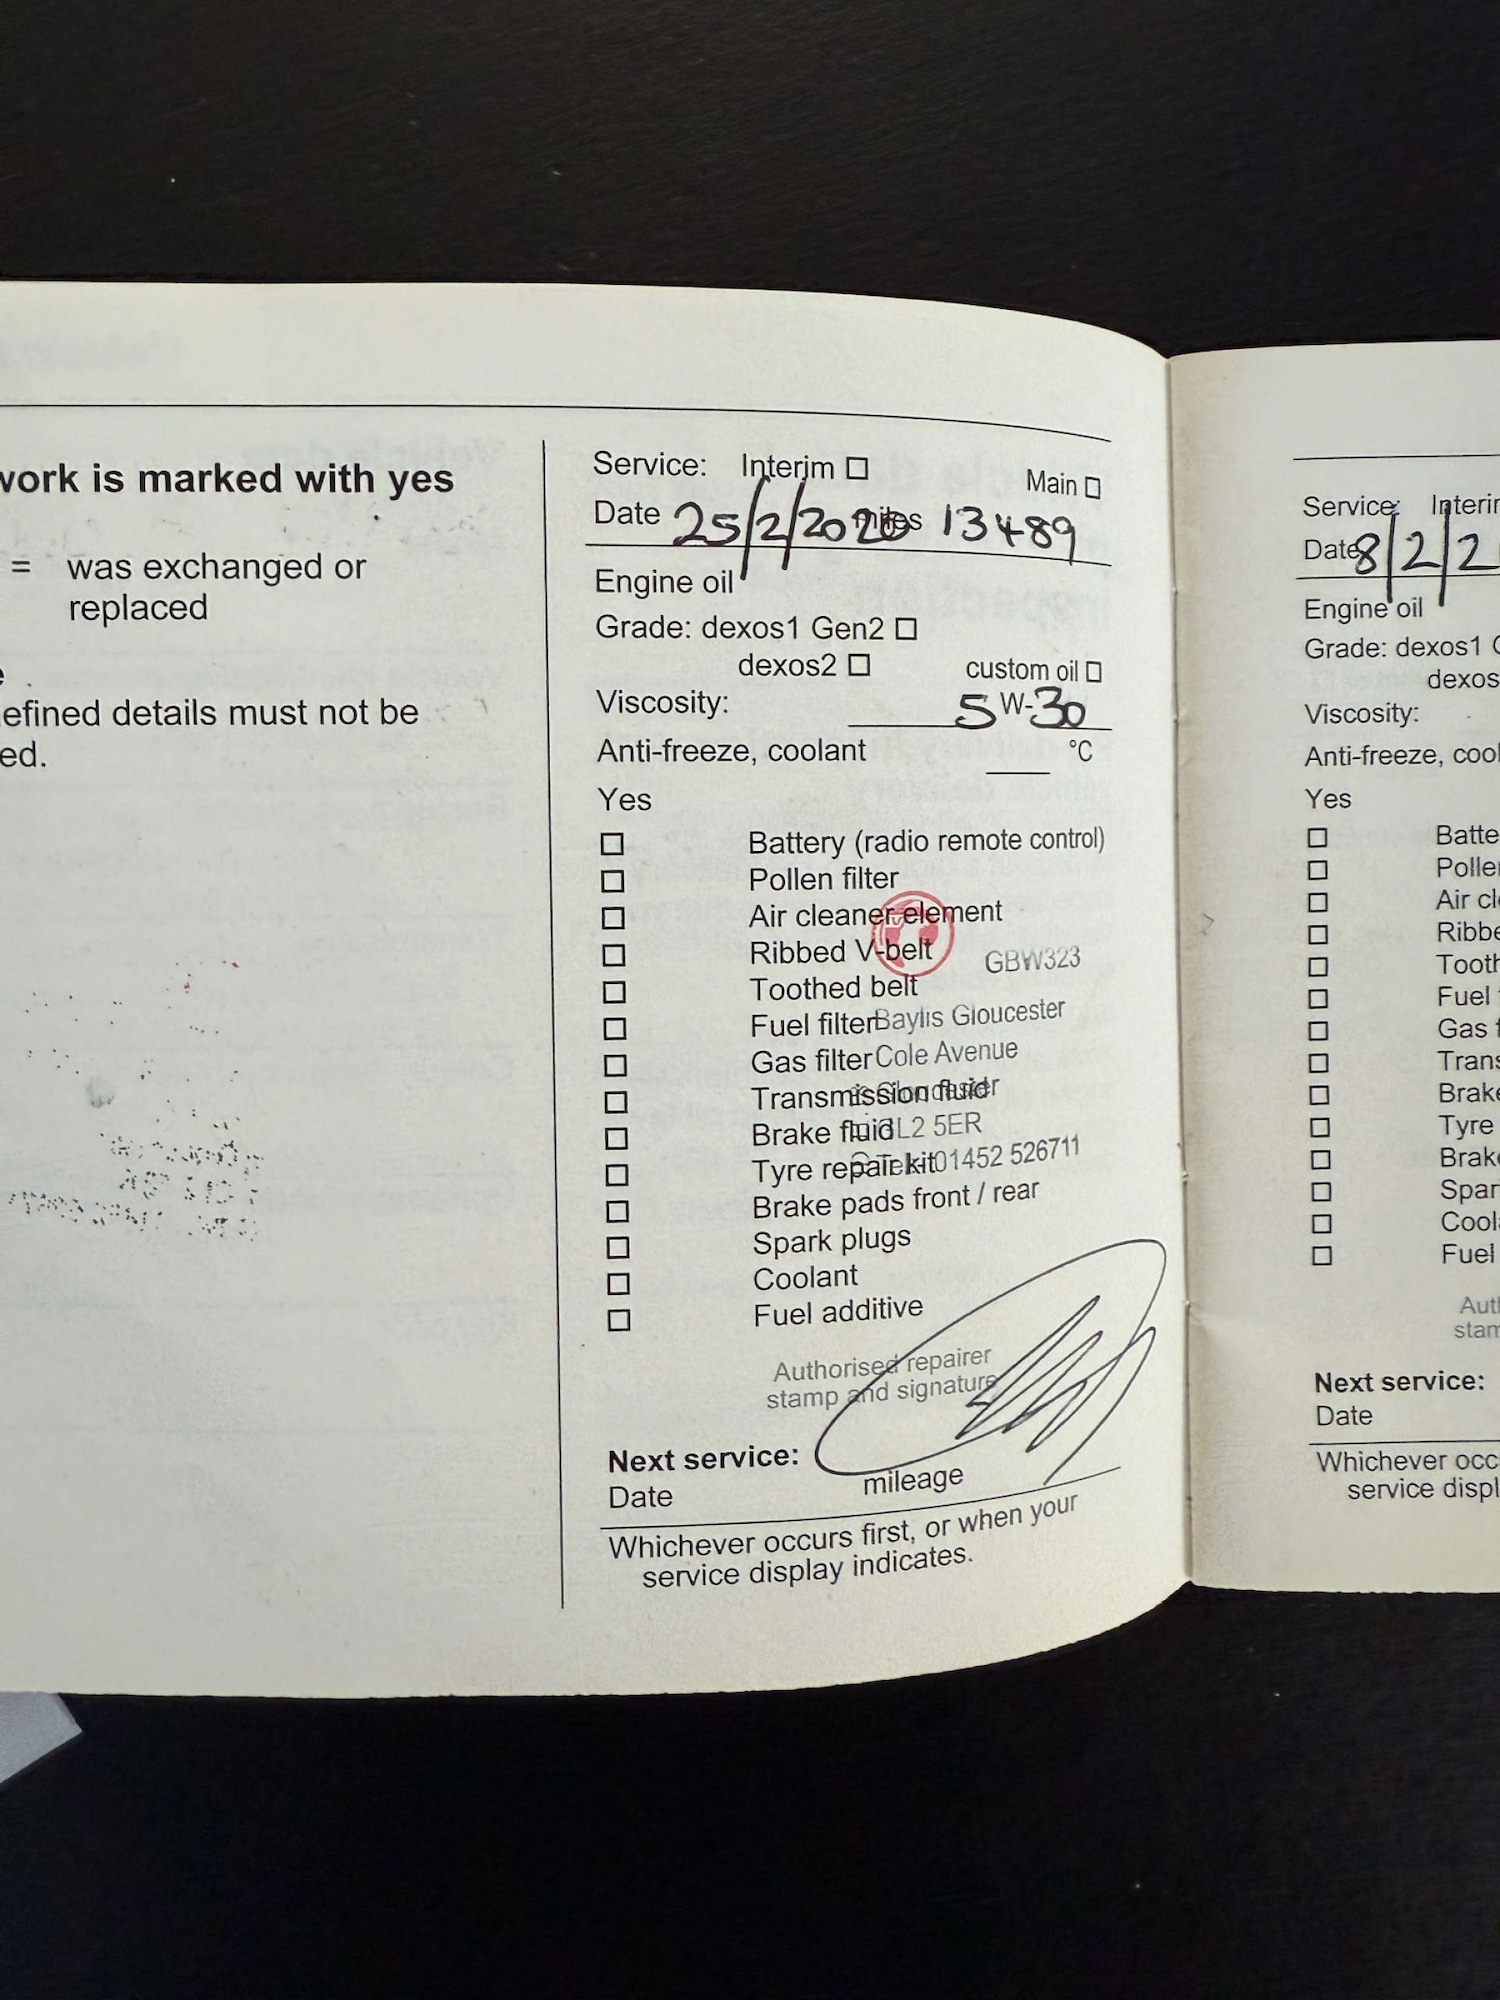 work is marked with yes
= was exchanged or
replaced
efined details must not be
ed.
Service: Interim □ Main □
Date 25/2/2020 miles 13489
Engine oil
Grade: dexos1 Gen2 □
dexos2 □ custom oil □
Viscosity: 5 W-30
Anti-freeze, coolant ___ °C
Yes
□ Battery (radio remote control)
□ Pollen filter
□ Air cleaner element
□ Ribbed V-belt
□ Toothed belt
□ Fuel filter
□ Gas filter
□ Transmission fluid
□ Brake fluid
□ Tyre repair kit
□ Brake pads front / rear
□ Spark plugs
□ Coolant
□ Fuel additive
GBW323
Baylis Gloucester
Cole Avenue
Gloucester
GL2 5ER
Tel: 01452 526711
Authorised repairer
stamp and signature
Next service:
Date mileage
Whichever occurs first, or when your
service display indicates.
Service: Interim
Date 8/2/2
Engine oil
Grade: dexos1 G
dexos
Viscosity:
Anti-freeze, cool
Yes
□ Batte
□ Pollen
□ Air cle
□ Ribbe
□ Tooth
□ Fuel f
□ Gas f
□ Trans
□ Brake
□ Tyre
□ Brake
□ Spar
□ Coola
□ Fuel
Auth
stam
Next service:
Date
Whichever occ
service displ